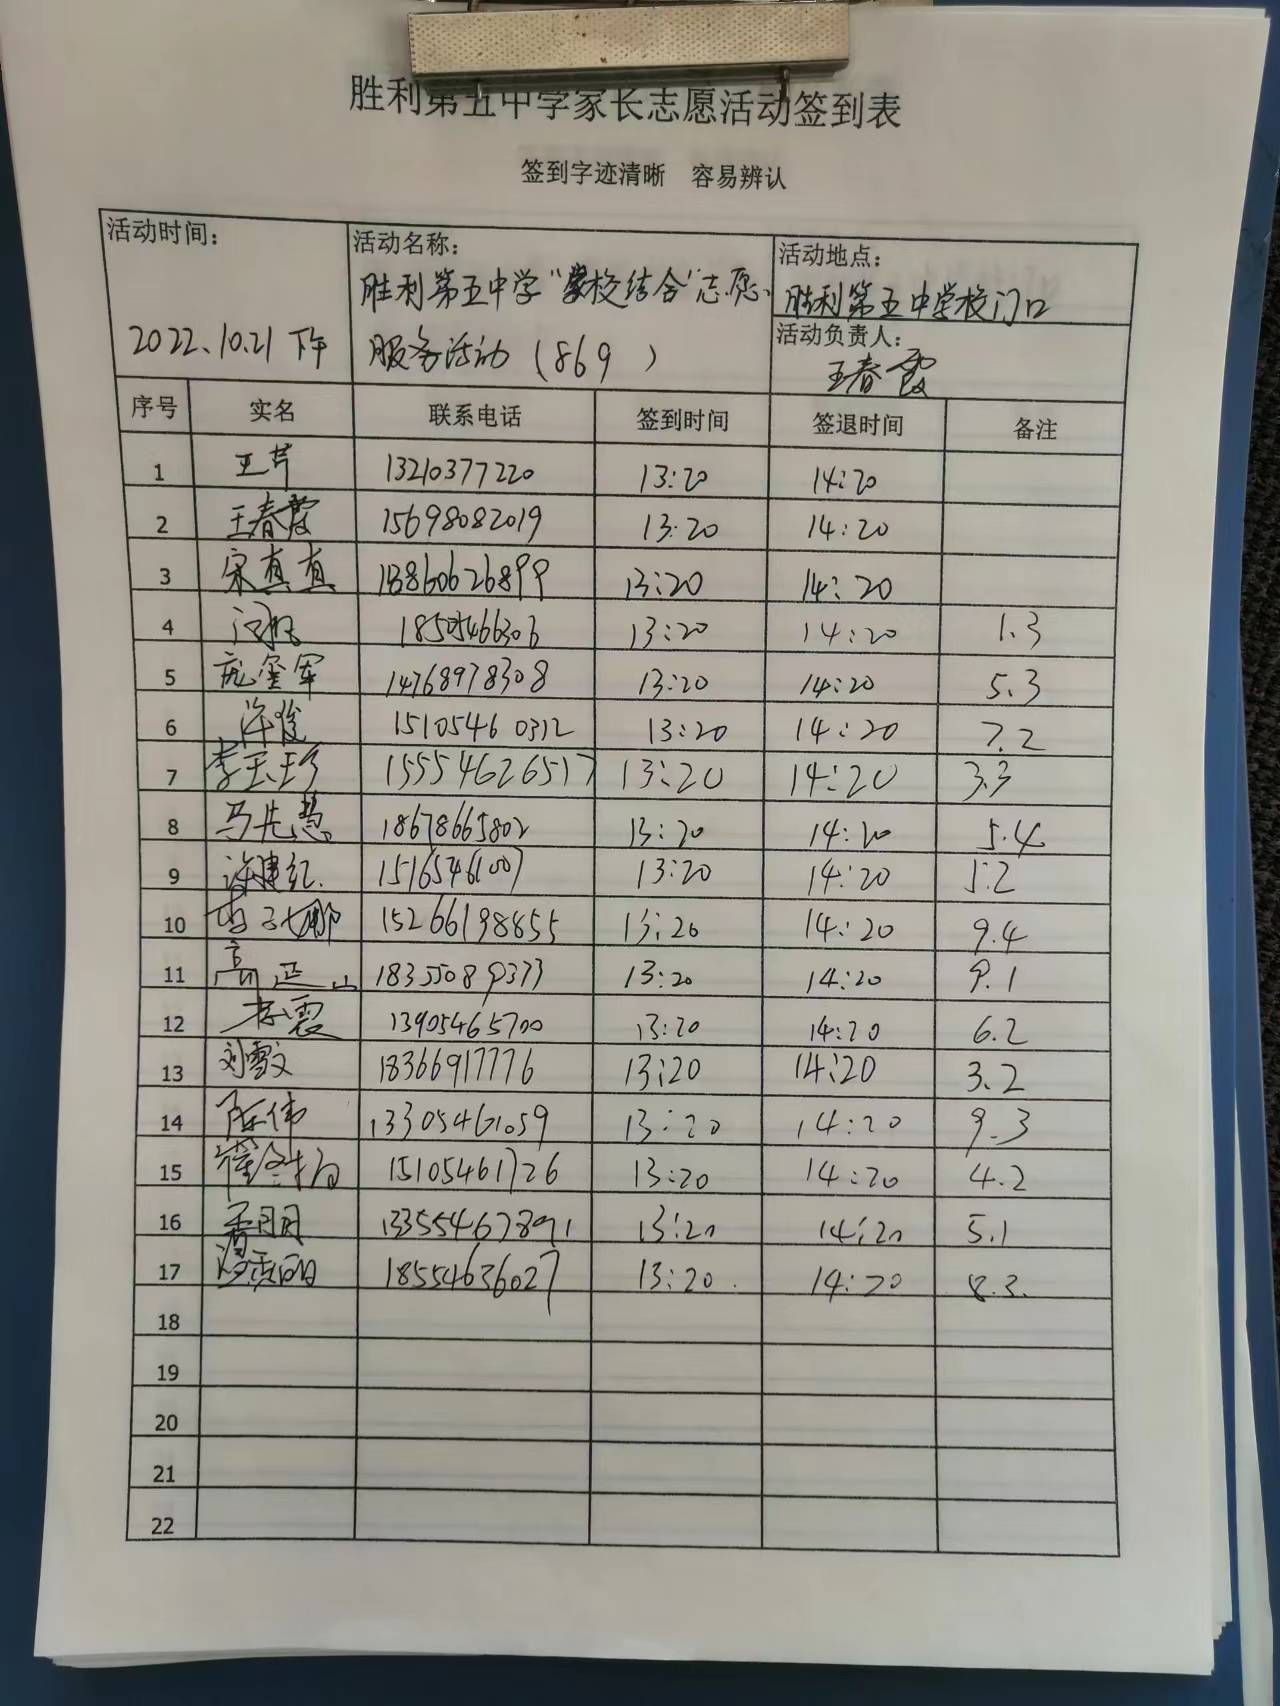 胜利第五中学家长志愿活动签到表
签到字迹清晰 容易辨认
活动时间: 活动名称: 活动地点:
胜利第五中学"家校结合"志愿 胜利第五中学校门口
2022.10.21 下午 服务活动 (869 ) 活动负责人:
王春霞
序号 实名 联系电话 签到时间 签退时间 备注
1 王芹 13210377220 13:20 14:20
2 王春霞 15698082019 13:20 14:20
3 宋真真 13860626899 13:20 14:20
4 13:20 14:20 1.3
5 庞金军 14768978308 13:20 14:20 5.3
6 许俊 15105460312 13:20 14:20 7.2
7 李玉珍 15554626517 13:20 14:20 3.3
8 马先慧 18678665802 13:20 14:20 5.4
9 许建红 15165461007 13:20 14:20 5.2
10 15266198855 13:20 14:20 9.4
11 高延山 18355089373 13:20 14:20 9.1
12 李震 13905465700 13:20 14:20 6.2
13 刘雪文 18366917776 13:20 14:20 3.2
14 陈伟 13305461059 13:20 14:20 9.3
15 15105461726 13:20 14:20 4.2
16 13355467891 13:20 14:20 5.1
17 18554636027 13:20 14:20 8.3
18
19
20
21
22